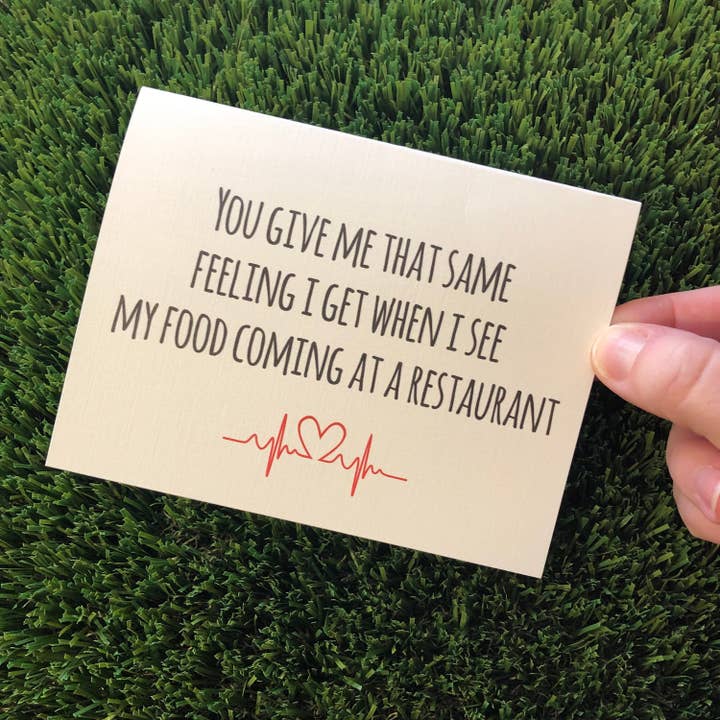 YOU GIVE ME THAT SAME
FEELING I GET WHEN I SEE
MY FOOD COMING AT A RESTAURANT